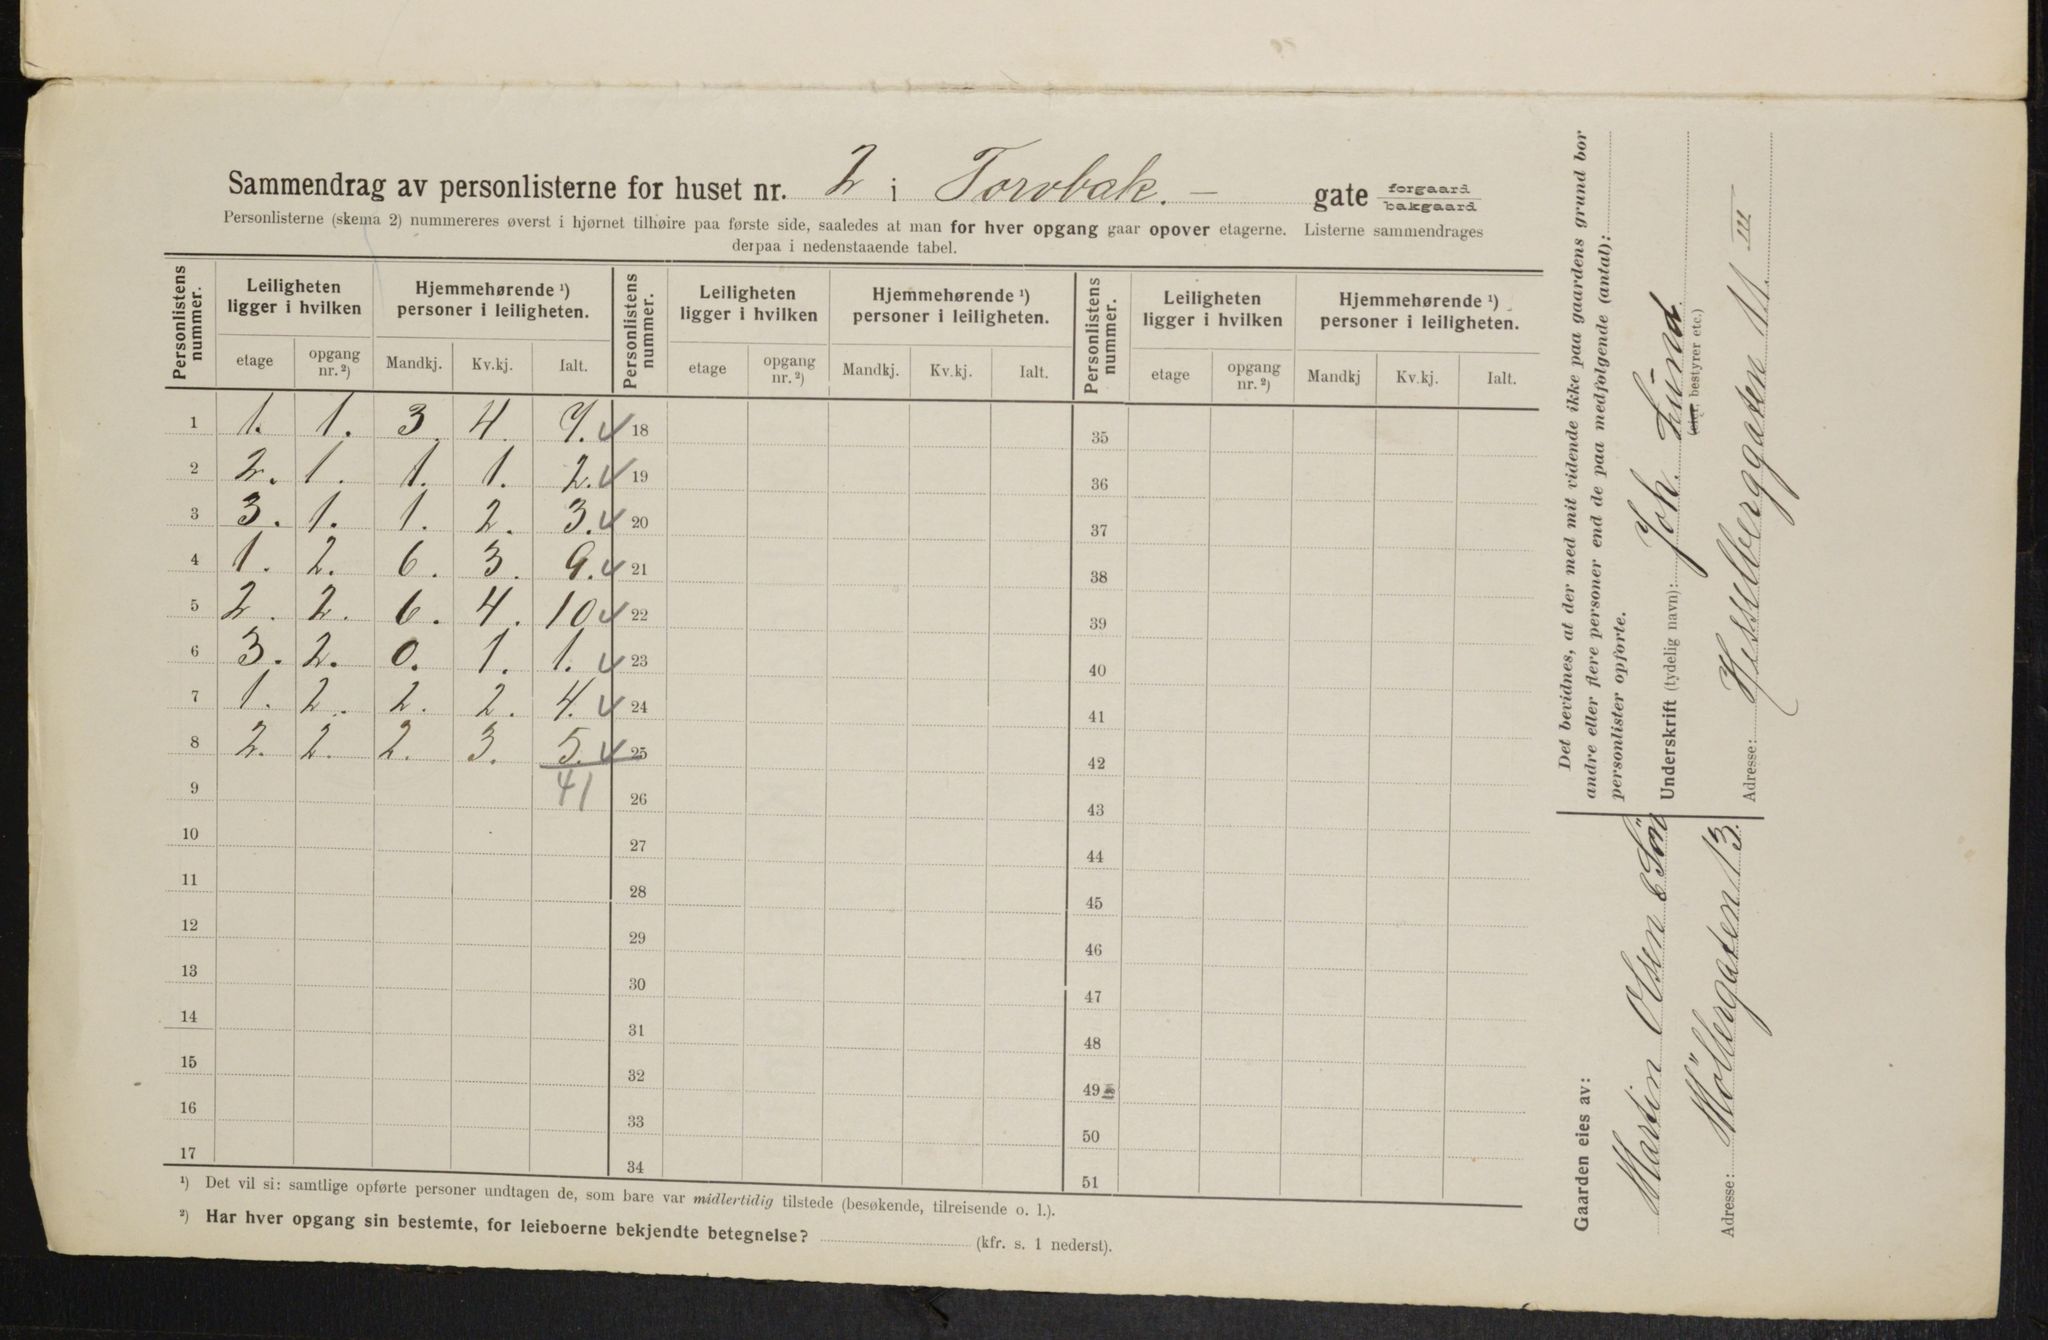 Sammendrag av personlisterne for huset nr. 2 i Torvbak. – gate forgaard bakgaard
Personlisterne (skema 2) nummereres øverst i hjørnet tilhøire paa første side, saaledes at man for hver opgang gaar opover etagerne. Listerne sammendrages
derpaa i nedenstaaende tabel.
Personlistens nummer. Leiligheten ligger i hvilken Hjemmehørende ¹) personer i leiligheten. Personlistens nummer. Leiligheten ligger i hvilken Hjemmehørende ¹) personer i leiligheten. Personlistens nummer. Leiligheten ligger i hvilken Hjemmehørende ¹) personer i leiligheten.
etage opgang nr. ²) Mandkj. Kv.kj. Ialt. etage opgang nr. ²) Mandkj. Kv.kj. Ialt. etage opgang nr. ²) Mandkj Kv.kj. Ialt.
1 1. 1. 3. 4. 7. 18 35
2 2. 1. 1. 1. 2. 19 36
3 3. 1. 1. 2. 3. 20 37
4 1. 2. 6. 3. 9. 21 38
5 2. 2. 6. 4. 10 22 39
6 3. 2. 0. 1. 1. 23 40
7 1. 2. 2. 2. 4. 24 41
8 2. 2. 2. 3. 5. 25 42
9 41 26 43
10 27 44
11 28 45
12 29 46
13 30 47
14 31 48
15 32 49
16 33 50
17 34 51
¹) Det vil si: samtlige opførte personer undtagen de, som bare var midlertidig tilstede (besøkende, tilreisende o. l.).
²) Har hver opgang sin bestemte, for leieboerne bekjendte betegnelse? (kfr. s. 1 nederst).
Det bevidnes, at der med mit vidende ikke paa gaardens grund bor
andre eller flere personer end de paa medfølgende (antal):
personlister opførte.
Underskrift (tydelig navn): Joh. Lund.
(eier, bestyrer etc.)
Adresse: Hesselberggaten 11 III
Gaarden eies av:
Martin Olsen & Sön
Adresse: Möllergaten 13.